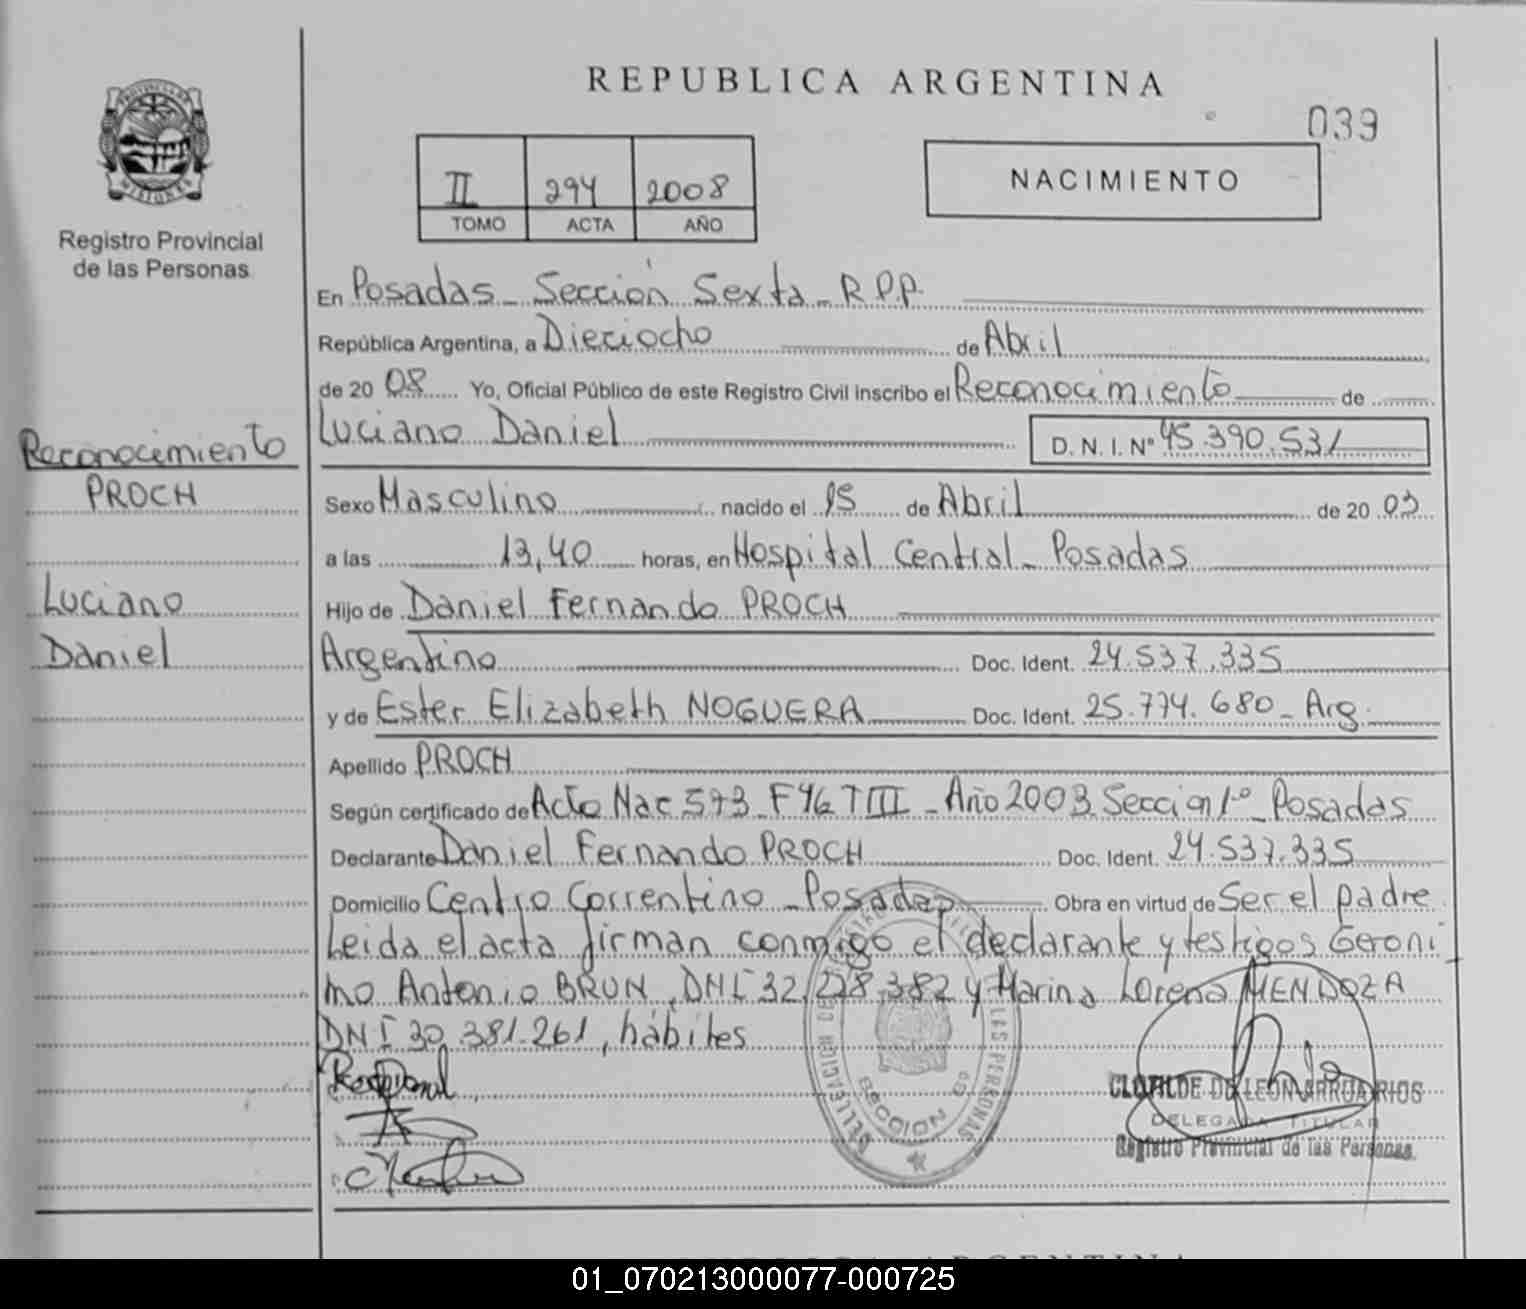 REPUBLICA ARGENTINA
039
PROVINCIA DE
MISIONES
Registro Provincial
de las Personas
II 294 2008
TOMO ACTA AÑO
NACIMIENTO
En Posadas - Sección Sexta - R.P.P.
República Argentina, a Dieciocho de Abril
de 2008 Yo, Oficial Público de este Registro Civil inscribo el Reconocimiento de
Luciano Daniel D. N. I. Nº 45.390.531
Reconocimiento
PROCH
Luciano
Daniel
Sexo Masculino nacido el 15 de Abril de 2003
a las 13,40 horas, en Hospital Central - Posadas
Hijo de Daniel Fernando PROCH
Argentino Doc. Ident. 24.537.335
y de Ester Elizabeth NOGUERA Doc. Ident. 25.774.680 - Arg.
Apellido PROCH
Según certificado de Acto Nac 573 F46 TIII - Año 2003 Seccion 1º - Posadas
Declarante Daniel Fernando PROCH Doc. Ident. 24.537.335
Domicilio Centro Correntino - Posadas Obra en virtud de Ser el padre
Leida el acta firman conmigo el declarante y testigos Geroni
mo Antonio BRUN, DNI 32.228.382 y Marina Lorena MENDOZA
DNI 30.381.261, hábiles
CLOTILDE DE LEON ARRUA RIOS
DELEGADA TITULAR
Registro Provincial de las Personas
SECCION 6º
01_070213000077-000725